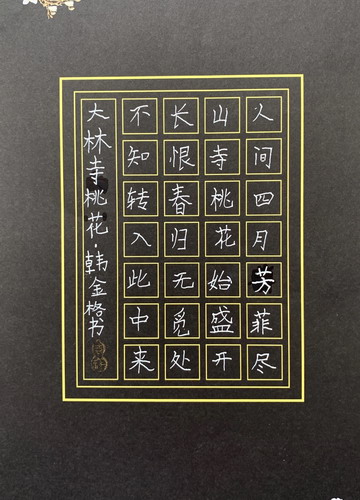 人间四月芳菲尽
山寺桃花始盛开
长恨春归无觅处
不知转入此中来
大林寺桃花·韩金格书